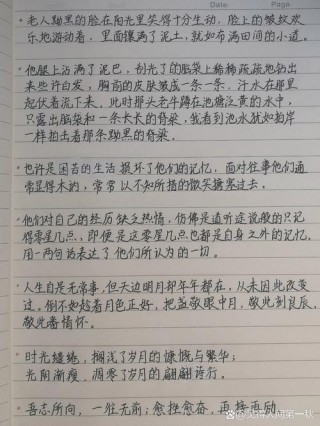 Date
Page
·老人黝黑的脸在阳光里笑得十分生动，脸上的皱纹欢
乐地游动着，里面镶满了泥土，就如布满田间的小道。
·他腿上沾满了泥巴，刮光了的脑袋上稀稀疏疏地钻出
来些许白发，胸前的皮肤皱成一条一条，汗水在那里
起伏着流下来。此时那头老牛蹲在池塘泛黄的水中，
只露出脑袋和一条长长的脊梁，我看到池水犹如拍岸
一样拍击着那条黝黑的脊梁。
·也许是困苦的生活损坏了他们的记忆，面对往事他们通
常显得木讷，常常以不知所措的微笑搪塞过去。
·他们对自己的经历缺乏热情，仿佛是道听途说般的只记
得零星几点，即便是这零星几点也都是自身之外的记忆，
用一两句话表达了他们所认为的一切。
·人生自是无常事，但天边明月却年年都在，从未因此改变
过。倒不如趁着月色正好，把盏敬眼中月，敬此刻良辰，
敬此番情怀。
·时光缱绻，搁浅了岁月的慷慨与繁华；
光阴渐瘦，凋零了岁月的翩翩诗行。
·吾志所向，一往无前；愈挫愈奋，再接再励。